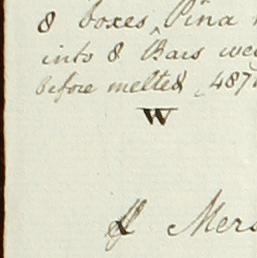 8 boxes Piña
into 8 Bars
before melted 487
W
Mers